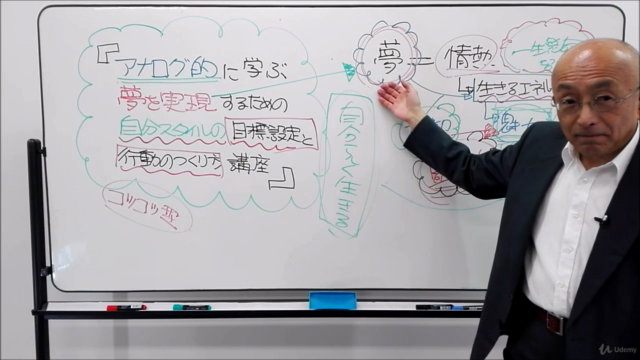 『アナログ的に学ぶ
夢を実現するための
自分スタイルの目標設定と
行動のつくり方講座』
コツコツ型
自分を生きる!
夢=情熱
生きるエネル
魂
Udemy